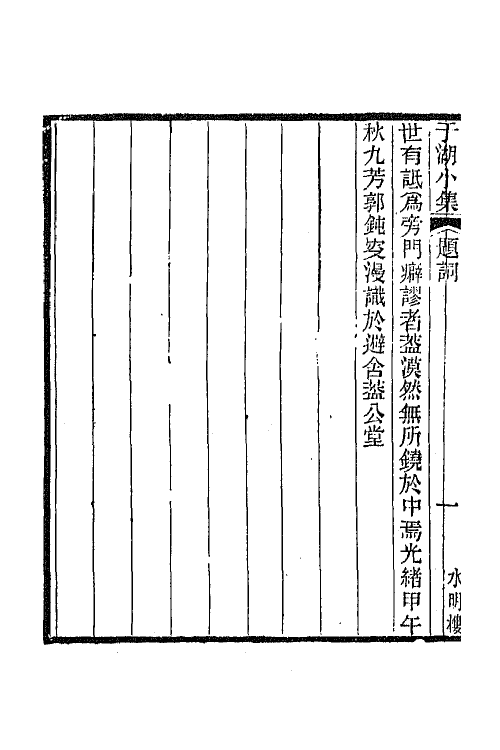 于湖小集 題詞 一 水明樓
世有詆爲旁門癖謬者葢漠然無所鐃於中焉光緒甲午
秋九芳郭鈍叟漫識於避舍葢公堂